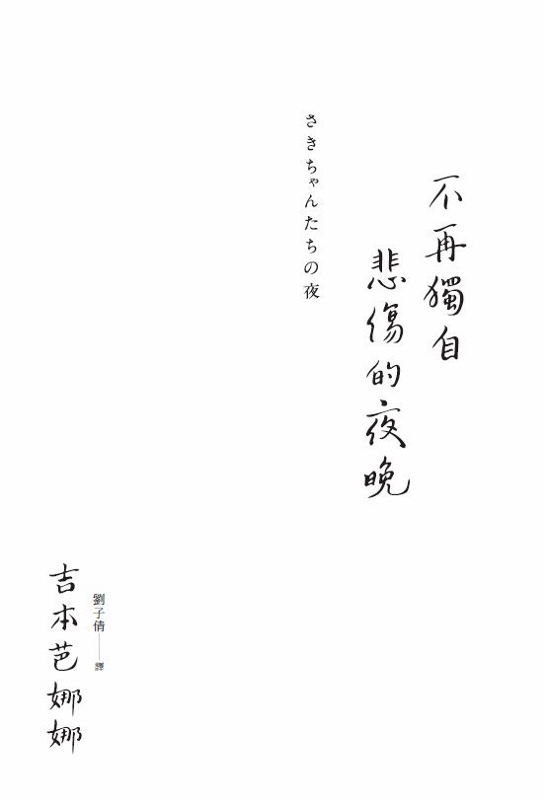 不再獨自
悲傷的夜晚
さきちゃんたちの夜
劉子倩──譯
吉本芭娜娜